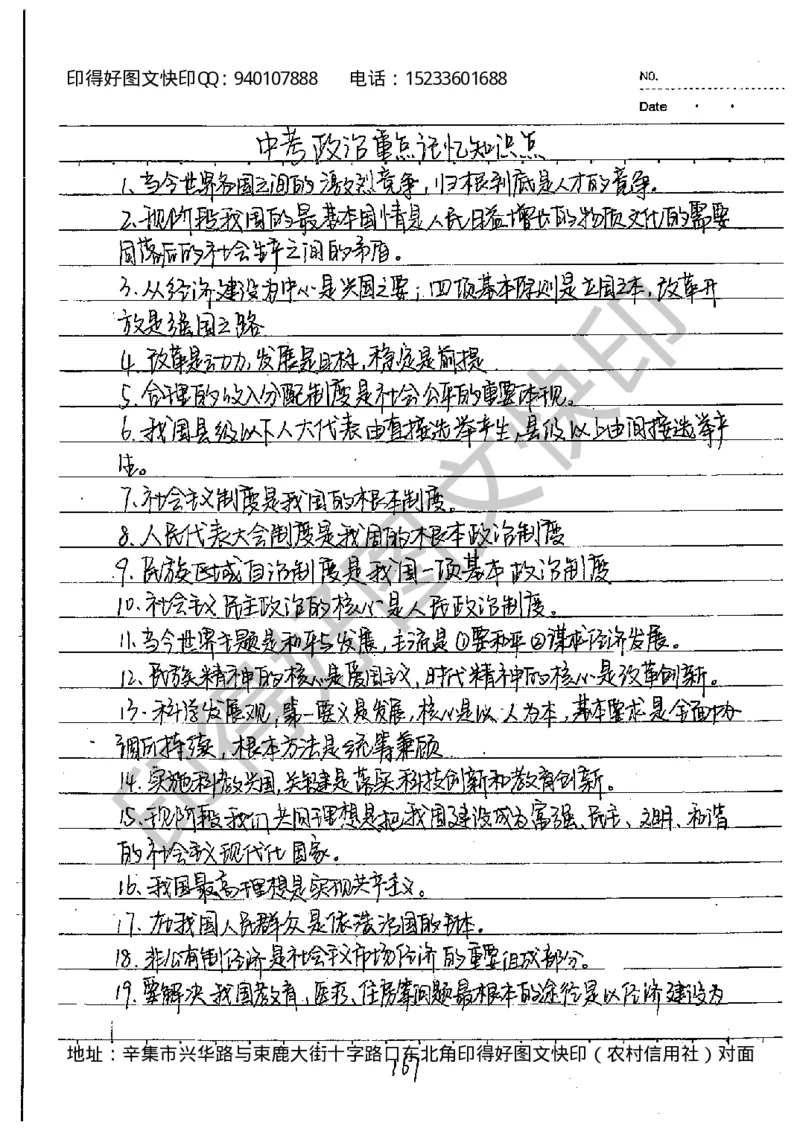 印得好图文快印QQ：940107888 电话：15233601688
NO.
Date
中考政治重点记忆知识点
1、当今世界各国之间的激烈竞争，归根到底是人才的竞争。
2、现阶段我国的最基本国情是人民日益增长的物质文化的需要
同落后的社会生产之间的矛盾。
3、以经济建设为中心是兴国之要；四项基本原则是立国之本，改革开
放是强国之路
4、改革是动力，发展是目标，稳定是前提
5、合理的收入分配制度是社会公平的重要体现。
6、我国县级以下人大代表由直接选举产生，县级以上由间接选举产
生。
7、社会主义制度是我国的根本制度。
8、人民代表大会制度是我国的根本政治制度
9、民族区域自治制度是我国一项基本政治制度
10、社会主义民主政治的核心是人民政治制度。
11、当今世界主题是和平与发展，主流是①要和平②谋求经济发展。
12、民族精神的核心是爱国主义，时代精神的核心是改革创新。
13、科学发展观，第一要义是发展，核心是以人为本，基本要求是全面协
调可持续，根本方法是统筹兼顾
14、实施科教兴国，关键是落实科技创新和教育创新。
15、现阶段我们共同理想是把我国建设成为富强、民主、文明、和谐
的社会主义现代化国家。
16、我国最高理想是实现共产主义。
17、在我国人民群众是依法治国的主体。
18、非公有制经济是社会主义市场经济的重要组成部分。
19、要解决我国教育，医疗、住房等问题最根本的途径是以经济建设为
地址：辛集市兴华路与束鹿大街十字路口东北角印得好图文快印（农村信用社）对面
167
印得好图文快印